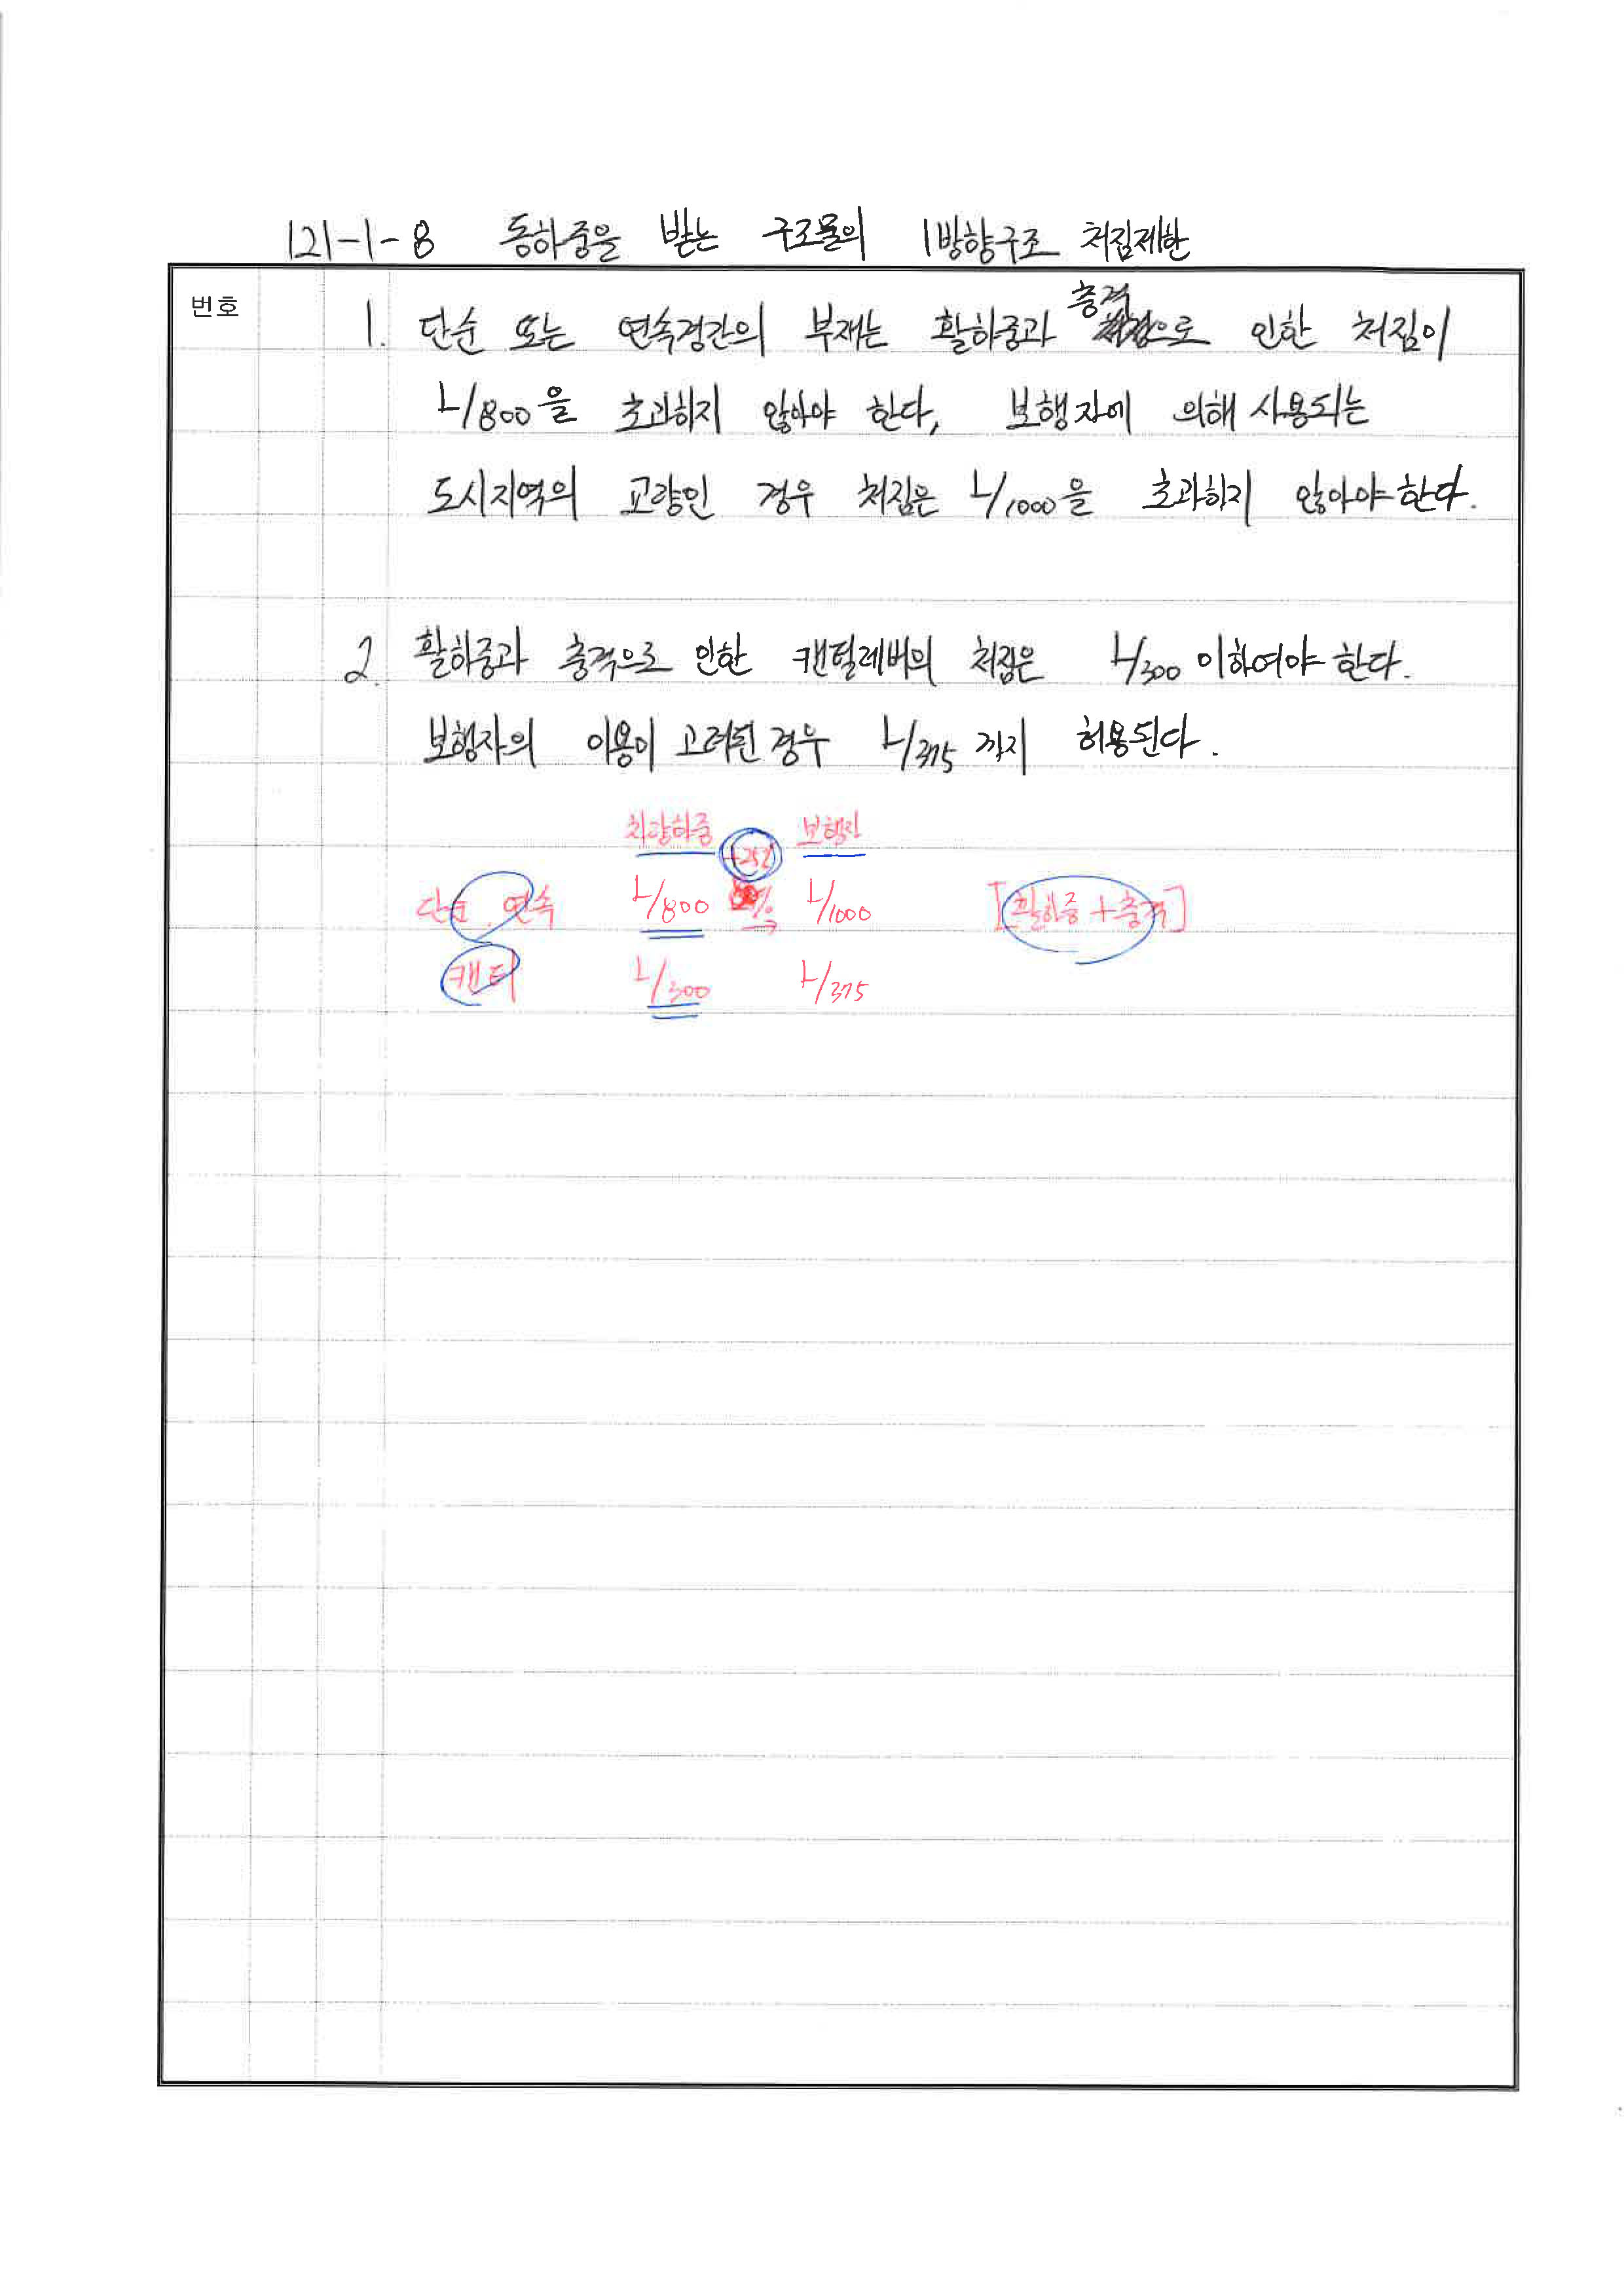 121-1-8 동하중을 받는 구조물의 1방향구조 처짐제한
번호
1. 단순 또는 연속경간의 부재는 활하중과 충격으로 인한 처짐이
L/800을 초과하지 않아야 한다, 보행자에 의해 사용되는
도시지역의 교량인 경우 처짐은 L/1000을 초과하지 않아야 한다.
2. 활하중과 충격으로 인한 캔틸레버의 처짐은 L/300 이하여야 한다.
보행자의 이용이 고려된 경우 L/375 까지 허용된다.
차량하중 +25% 보행자
단순, 연속 L/800 → L/1000 [활하중 + 충격]
캔틸 L/300 L/375